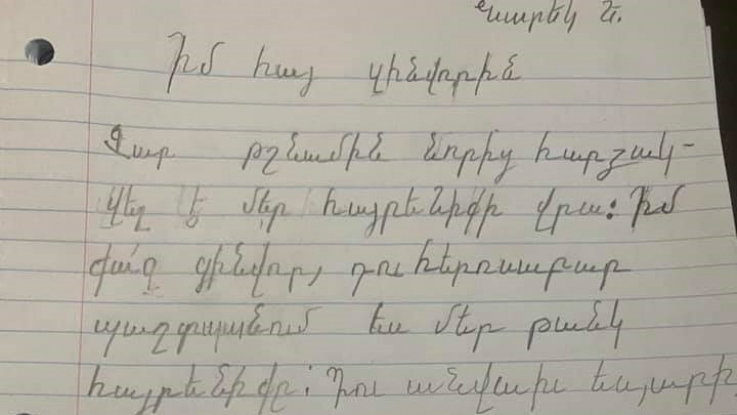 Նարեկ Ե.
Իմ հայ զինվորին
Չար թշնամին նորից հարձակ-
վել է մեր հայրենիքի վրա: Իմ
քաջ զինվոր, դու հերոսաբար
պաշտպանում ես մեր թանկ
հայրենիքը: Դու անվախ եւ արի